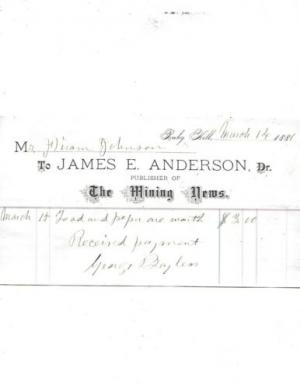 Ruby Hill, March 14 1881
Mr Hiram Johnson
To JAMES E. ANDERSON, Dr.
PUBLISHER OF
The Mining News.
March 14 and paper one month $3.00
Received payment
George Baylers